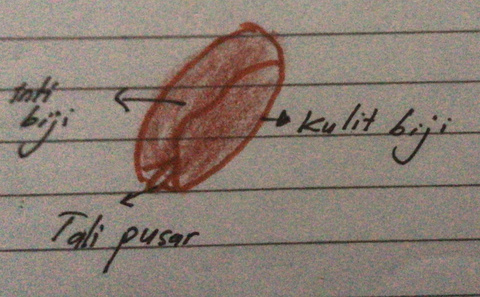 Inti
biji
Kulit biji
Tali pusar